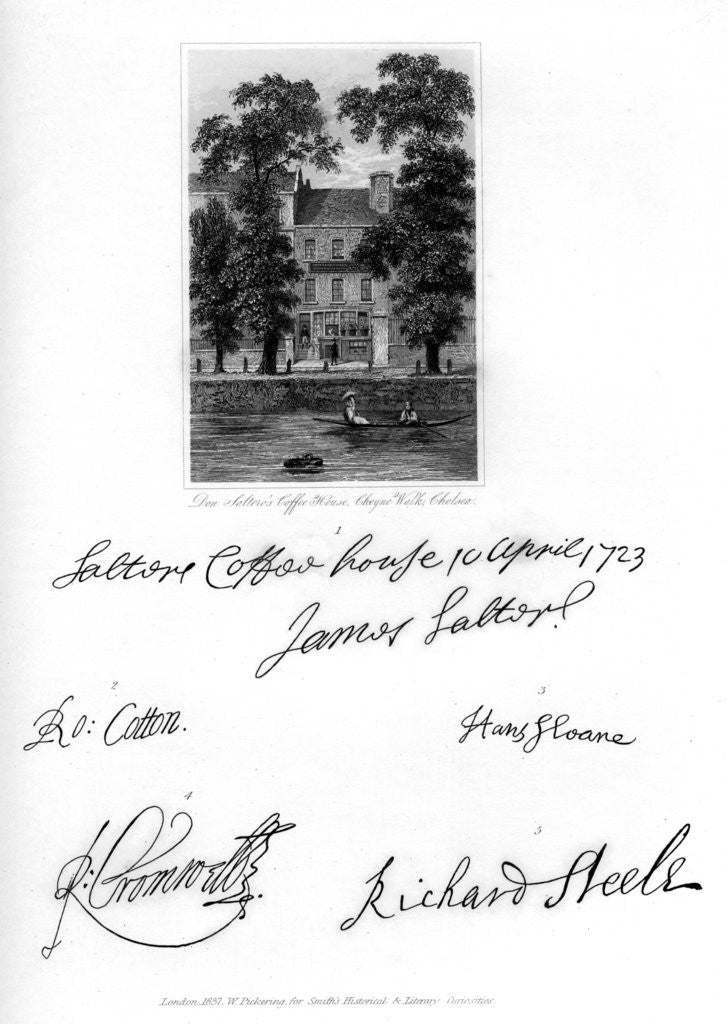 Don Saltero's Coffee House, Cheyne Walk, Chelsea.
1
Salters Coffee house 10 April 1723
James Salter
2
Ro: Cotton.
3
Hans Sloane
4
R: Cromwell
5
Richard Steele
London. 1837. W. Pickering, for Smith's Historical & Literary Curiosities